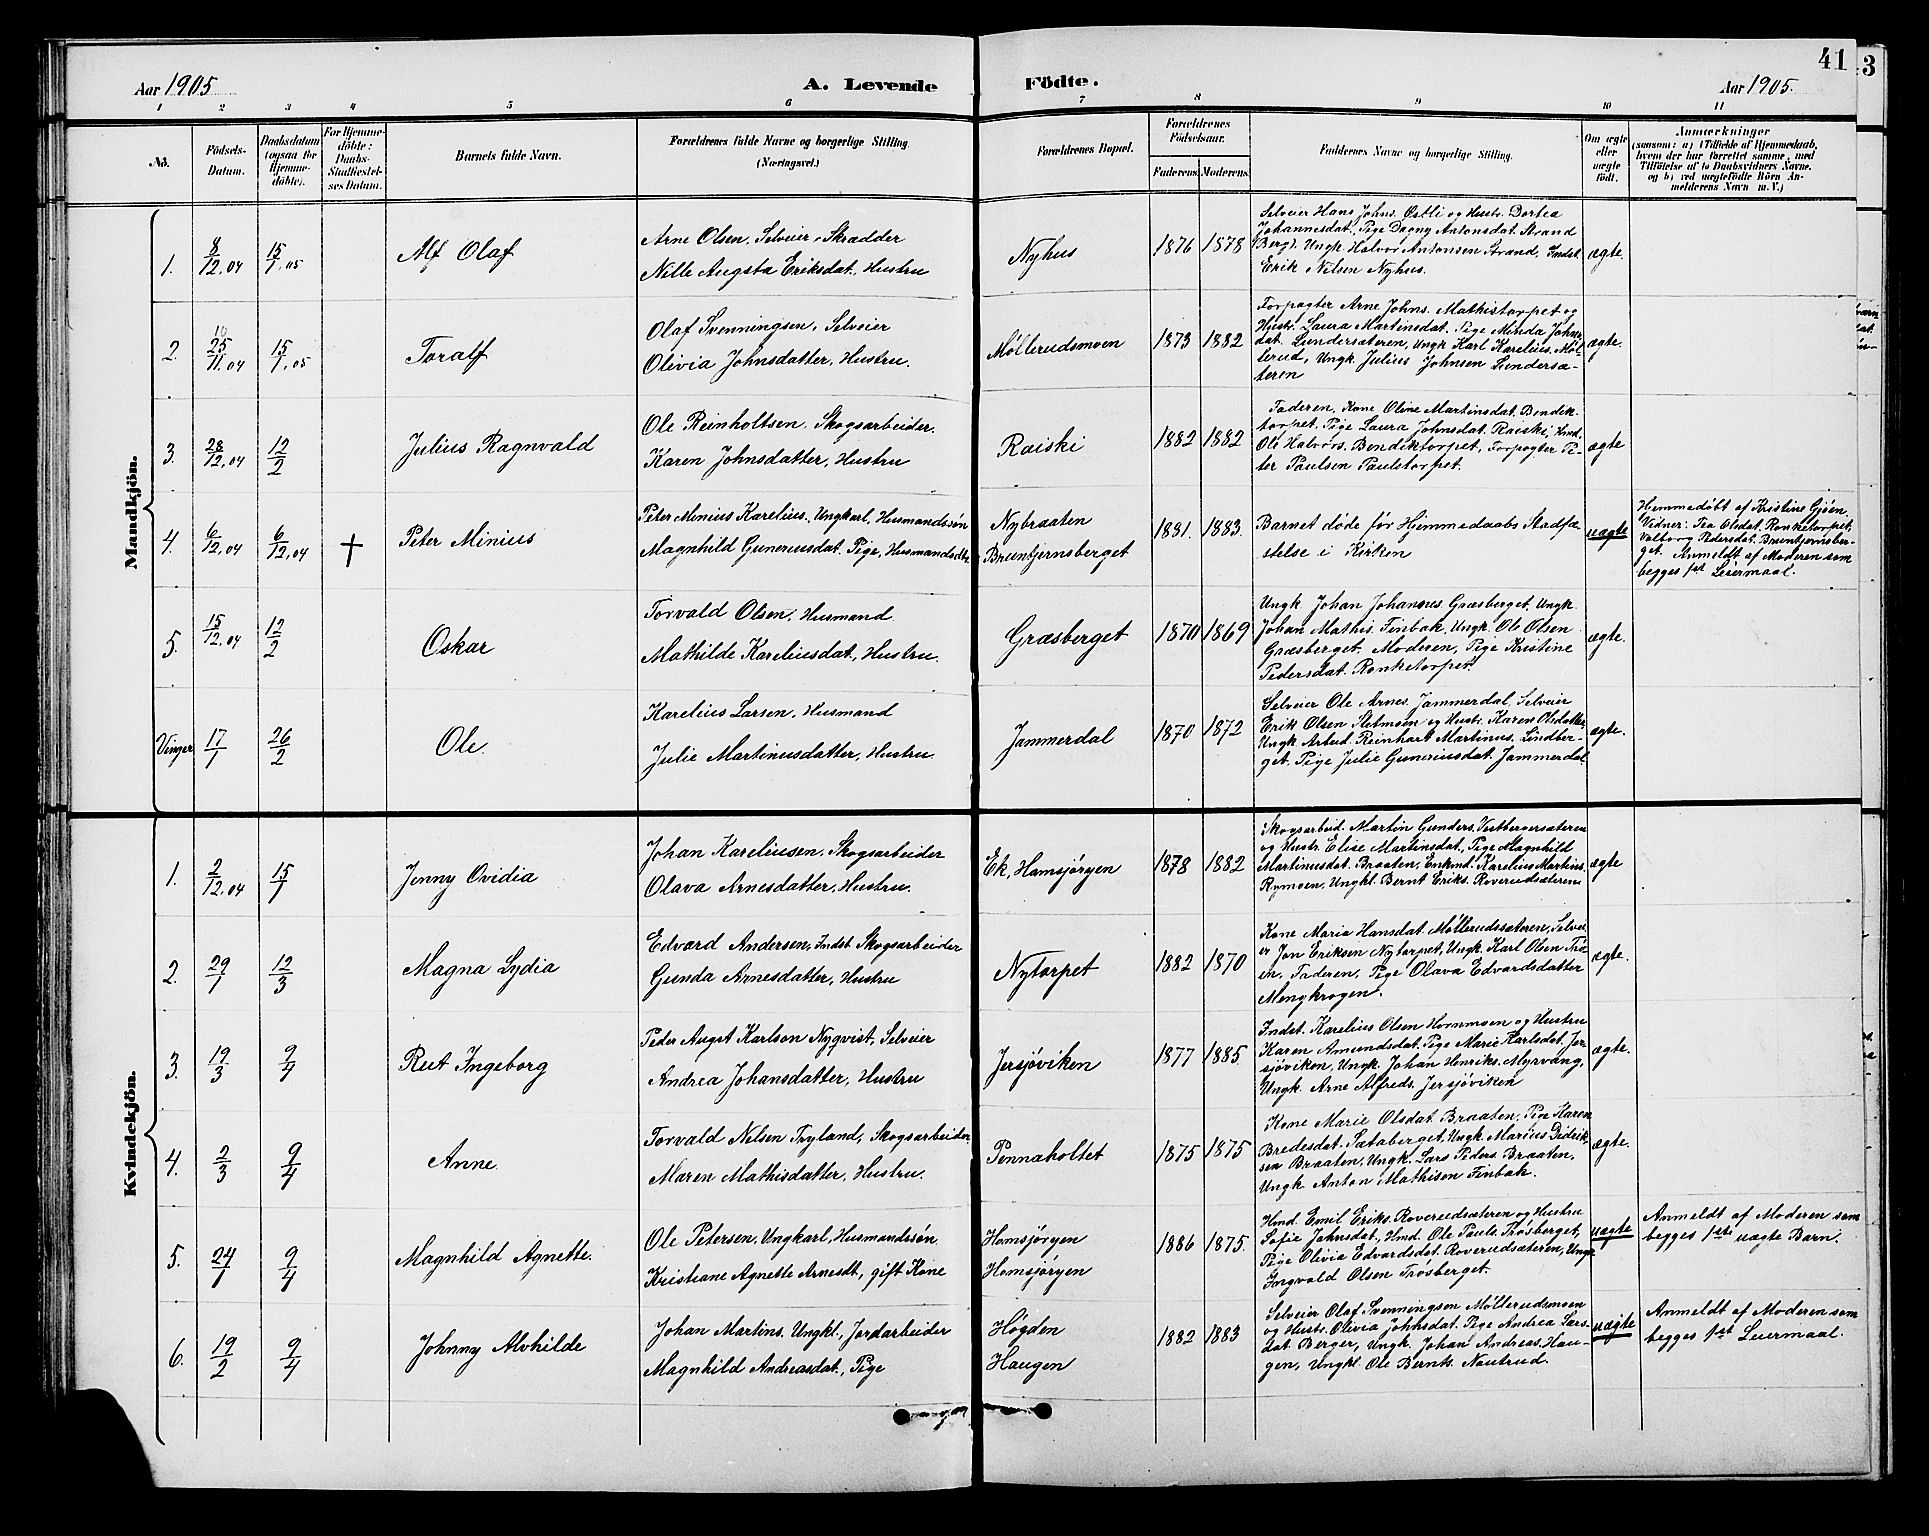 41
3
Aar 1905
A. Levende Födte.
Aar 1905.
1 2 3 4 5 6 7 8 9 10 11
No.
Födsels-
Datum.
Daabsdatum
(ogsaa for
Hjemme-
döbte).
For Hjemme-
döbte:
Daabs-
Stadfæstel-
ses Datum.
Barnets fulde Navn.
Forældrenes fulde Navne og borgerlige Stilling
(Næringsvei.)
Forældrenes Bopæl.
Forældrenes
Födselsaar.
Faderens. Moderens.
Faddernes Navne og borgerlige Stilling.
Om ægte
eller
uægte
födt.
Anmærkninger
(saasom: a) i Tilfælde af Hjemmedaab,
hvem der har forrettet samme, med
Tilföielse af to Daabsvidners Navne,
og b) ved uægtefödte Börn An-
melderens Navn m. V.)
Mandkjön.
1. 8/12.04 15/1.05 Alf Olaf
Arne Olsen, Selveier, Skrædder
Nille Augsta Eriksdat, Hustru
Nyhus 1876 1878
Selveier Hans Johns. Østli og Hustr. Dortea
Johannesdat, Pige Dagny Antonsdat. Strand
Berg), Ungk. Halvor Antonsen Strand, Indst.
Erik Nilsen Nyhus.
ægte.
2. 10 25/11.04 15/1.05 Toralf
Olaf Svenningsen, Selveier
Olivia Johnsdatter, Hustru.
Møllerudsmoen 1873 1882
Forpagter Arne Johns. Mathistorpet og
Hustr. Laura Martinsdat. Pige Minda Johns-
dat. Lundersæteren, Ungk Karl Karelius. Møl-
lerud, Ungk Julius Johnsen Lundersæ-
teren
ægte.
3. 28/12.04 12/2 Julius Ragnvald
Ole Reinholtsen. Skogsarbeider.
Karen Johnsdatter, Hustru
Raiski 1882 1882
Faderen, Kone Oline Martinsdat. Bendik-
torpet, Pige Laura Johnsdat. Raiski, Hmd.
Ole Halvors. Bendiktorpet, Forpagter Pe-
ter Paulsen Paulstorpet.
ægte
4. 6/12.04 6/12.04 † Peter Minius
Peter Minius Karelius., Ungkarl, Husmandssøn
Magnhild Guneriusdat. Pige, Husmandsdtr.
Nybraaten
Bruntjernsberget
1881. 1883.
Barnet døde før Hjemmedaabs Stadfæ-
stelse i Kirken
uægte
Hemmedøbt af Kristine Gjøen.
Vidner: Tea Olsdat, Ronketorpet,
Valborg Pedersdat. Bruntjernsber-
get. Anmeldt af Moderen som
begges 1ste Leiermaal.
5. 15/12.04 12/2 Oskar
Torvald Olsen, Husmand
Mathilde Kareliusdat, Hustru.
Græsberget 1870 1869
Ungk Johan Johannes Græsberget, Ungk.
Johan Mathis. Finbak, Ungk. Ole Olsen
Græsberget. Moderen, Pige Kristine
Pedersdat. Ronketorpet
ægte.
Vinger 17/1 26/2 Ole.
Karelius Larsen, Husmand
Julie Martinusdatter, Hustru.
Jammerdal 1870 1872
Selveier Ole Arnes. Jammerdal, Selveier
Erik Olsen Sletmoen og Hustr. Karen Olsdatter
Ungk. Arbeid. Reinhart Martinus. Lindber-
get. Pige Julie Guneriusdat. Jammerdal
ægte.
Kvindekjön.
1. 2/12.04 15/1 Jenny Ovidia
Johan Kareliussen. Skogsarbeider
Olava Arnesdatter, Hustru.
Ek, Homsjøryen 1878 1882
Skogsarbeid. Martin Gunders. Vestbergersæteren
og Hustr. Elise Martinsdat, Pige Magnhild
Martinusdat. Braaten, Enkmd. Karelius Martins.
Rymoen, Ungkl. Bernt Eriks. Roverudsæteren
ægte
2. 29/1 12/3 Magna Lydia
Edvard Andersen, Indst. Skogsarbeider
Gunda Arnesdatter, Hustru
Nytorpet 1882 1870
Kone Maria Hansdat. Møllerudsæteren, Selvei-
er Jon Eriksen Nytorpet, Ungk. Karl Olsen Trø-
en, Faderen, Pige Olava Edvardsdatter
Mengkrogen.
ægte.
3. 19/3 9/4 Rut Ingeborg
Peder Augst Karlson Nyqvist, Selveier
Andrea Johansdatter, Hustru
Jersjøviken 1877 1885
Indst. Karelius Olsen Hornmoen og Hustru
Karen Amundsdat. Pige Marie Karlsdat. Jer-
sjøviken, Ungk. Johan Henriks. Myrvang,
Ungk. Arne Alfreds. Jersjøviken
ægte.
4. 2/3 9/4 Anne.
Torvald Nilsen Tryland, Skogsarbeider
Maren Mathisdatter, Hustru.
Pennaholtet 1875 1875
Kone Marie Olsdat Braaten, Pige Karen
Bredesdat. Sætaberget, Ungk. Marius Didrik-
sen Braaten, Ungk. Lars Peders. Braaten,
Ungk. Anton Mathisen Finbak.
ægte.
5. 24/1 9/4 Magnhild Agnette.
Ole Petersen, Ungkarl, Husmandssøn
Kristiane Agnette Arnesdt., gift Kone
Homsjøryen
Homsjøryen
1886 1875.
Hmd. Emil Eriks. Roverudsæteren og Hustru
Sofie Johnsdat., Hmd. Ole Pauls. Trøsberget,
Pige Olivia Edvardsdat. Roverudsæteren, Ungk.
Ingvald Olsen Trøsberget.
uægte
Anmeldt af Moderen som
begges 1ste uægte Barn.
6. 19/2 9/4 Johnny Alvhilde
Johan Martins. Ungkl., Jordarbeider
Magnhild Andreasdat., Pige
Høgden
Haugen
1882 1883
Selveier Olaf Svenningsen Møllerudsmoen
og Hustr. Olivia Johnsdat. Pige Andrea Lars-
dat. Berger, Ungk. Johan Andreas. Hau-
gen, Ungkl. Ole Bernts. Nautrud.
uægte
Anmeldt af Moderen som
begges 1ste Leiermaal.